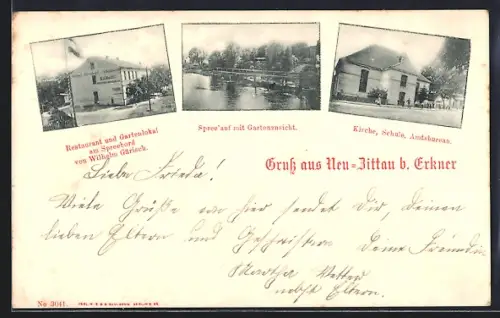 Restaurant und Gartenlokal
am Spreebord
von Wilhelm Gürlach.
Spreelauf mit Gartenansicht.
Kirche, Schule, Amtsbureau.
Gruß aus Neu-Zittau b. Erkner
Liebe Frieda!
Viele Grüße von hier sendet Dir, Deinen
lieben Eltern und Geschwistern Deine Freundin
Martha
nebst Eltern.
No 3041.